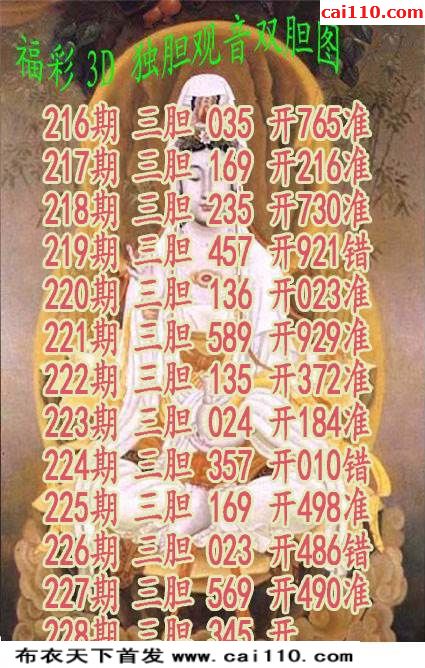 cai110.com
福彩 3D 独胆观音双胆图
216期 三胆 035 开765准
217期 三胆 169 开216准
218期 三胆 235 开730准
219期 三胆 457 开921错
220期 三胆 136 开023准
221期 三胆 589 开929准
222期 三胆 135 开372准
223期 三胆 024 开184准
224期 三胆 357 开010错
225期 三胆 169 开498准
226期 三胆 023 开486错
227期 三胆 569 开490准
228期 三胆 345 开
布衣天下首发 www.cai110.com